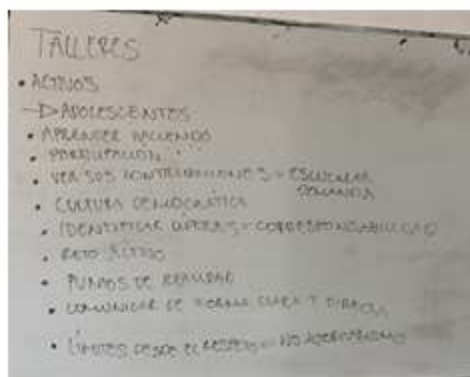 TALLERES
• ACTIVOS
→ ADOLESCENTES
• APRENDER HACIENDO
• PARTICIPACIÓN
• VER SUS CONTRIBUCIONES = ESCUCHAR
DEMANDA
• CULTURA DEMOCRÁTICA
• IDENTIFICAR = CORRESPONSABILIDAD
• RETO
• PUNTOS DE REALIDAD
• COMUNICAR DE FORMA CLARA Y DIRECTA
• LÍMITES DESDE EL RESPETO = NO